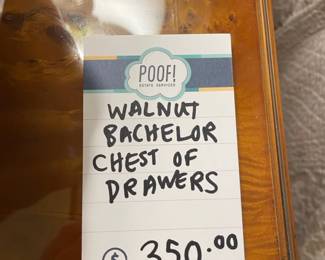 POOF!
ESTATE SERVICES
WALNUT
BACHELOR
CHEST OF
DRAWERS
$ 350.00